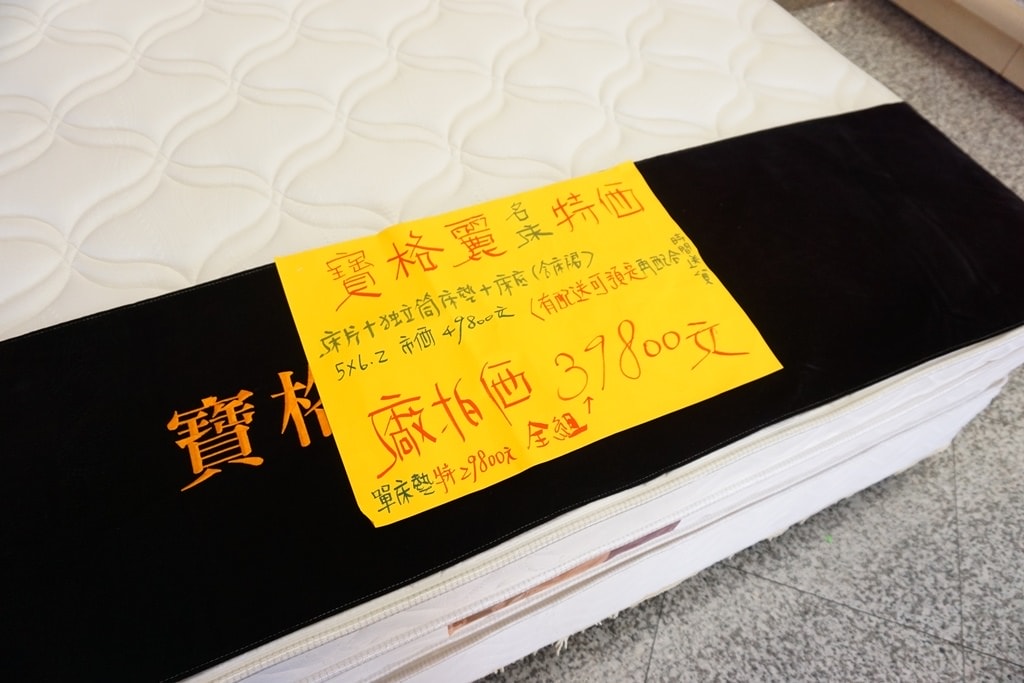 寶格麗名床特価
床片+独立筒床墊+床座(含床裙)
5X6.2 市価 49800元
(有配送可預定再配合時間送貨)
廠拍価 39800元
全組↑
單床墊特29800元
寶格